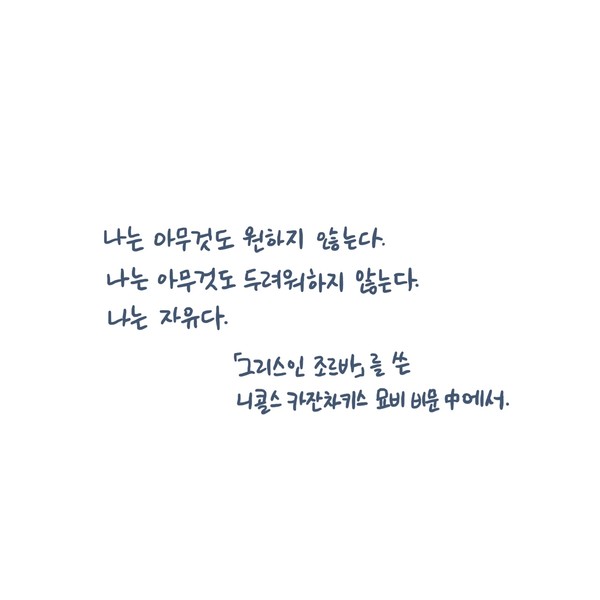 나는 아무것도 원하지 않는다.
나는 아무것도 두려워하지 않는다.
나는 자유다.
「그리스인 조르바」를 쓴
니콜스 카잔차키스 묘비 비문 中에서.